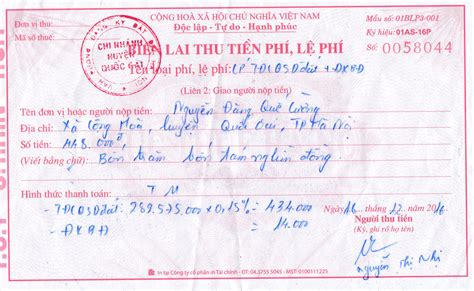 CỘNG HOÀ XÃ HỘI CHỦ NGHĨA VIỆT NAM
Độc lập - Tự do - Hạnh phúc
Mẫu số: 01BLP3-001
Ký hiệu: 01AS-16P
Số: 0058044
Đơn vị thu:
Mã số thuế:
CHI NHÁNH
HUYỆN
QUỐC OAI
BIÊN LAI THU TIỀN PHÍ, LỆ PHÍ
Tên loại phí, lệ phí: LP TĐCQSDđất + ĐKBĐ
(Liên 2: Giao người nộp tiền)
Tên đơn vị hoặc người nộp tiền: Nguyễn Đăng Quê Cường
Địa chỉ: Xã Cộng Hòa, huyện Quốc Oai, TP Hà Nội
Số tiền: 448.000đ
(Viết bằng chữ): Bốn trăm bốn tám nghìn đồng.
Hình thức thanh toán: TM
- TĐCQSDđất: 289.575.000 x 0,15% = 434.000
- ĐKBĐ = 14.000
Ngày 16 tháng 12 năm 2016
Người thu tiền
(Ký, ghi rõ họ tên)
Nguyễn Thị Nhị
In tại Công ty cổ phần in Tài chính - ĐT: 04.3755 5045 - MST: 0100111225